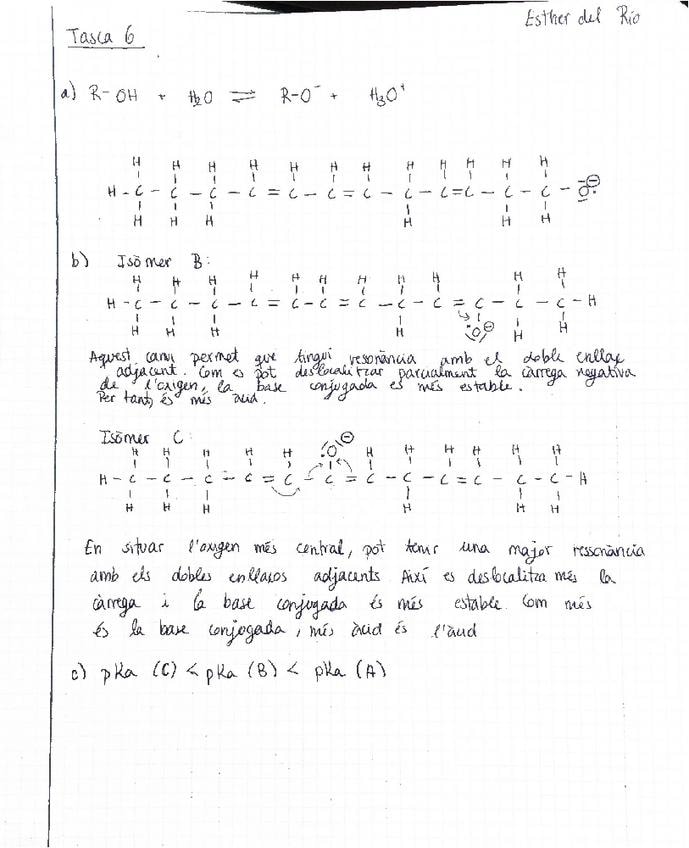 Esther del Río
Tasca 6
a) R-OH + H2O ⇌ R-O⁻ + H3O⁺
H H H H H H H H H H H H
H - C - C - C - C = C - C = C - C - C = C - C - C - O:⊖
H H H H H H
b) Isòmer B:
H H H H H H H H H H H
H - C - C - C - C = C - C = C - C - C = C - C - C - H
H H H H :O:⊖ H H
Aquest canvi permet que tingui resonància amb el doble enllaç
adjacent. Com es pot deslocalitzar parcialment la càrrega negativa
de l'oxigen, la base conjugada es més estable.
Per tant, és més àcid.
Isòmer C:
H H H H H :O:⊖ H H H H H H
H - C - C - C - C = C - C = C - C - C = C - C - C - H
H H H H H H
En situar l'oxigen més central, pot tenir una major ressonància
amb els dobles enllaços adjacents. Així es deslocalitza més la
càrrega i la base conjugada és més estable. Com més
és la base conjugada, més àcid és l'àcid
c) pKa (C) < pKa (B) < pKa (A)